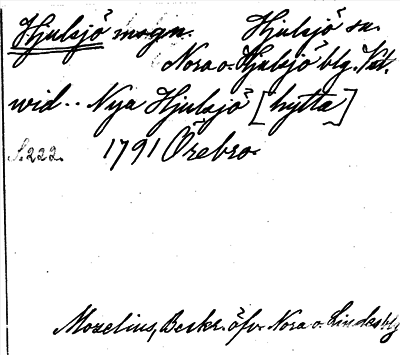 Hjulsjö masgn. Hjulsjö sn.
Nora o. Hjulsjö blg. Väst.
vid .. Nya Hjulsjö [hytta]
S. 222. 1791 Örebro.
Mozelius, Beskr. öfv. Nora o. Lindesblg